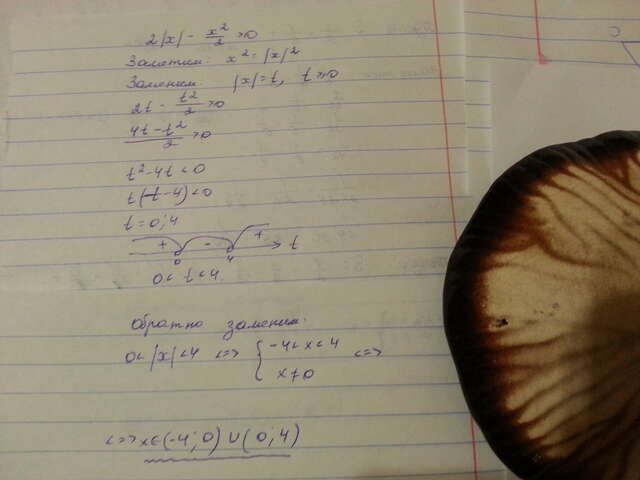 2|x| - x²/2 > 0
Заметим: x² = |x|²
Заменим: |x| = t, t ≥ 0
2t - t²/2 > 0
(4t - t²)/2 > 0
t² - 4t < 0
t(t - 4) < 0
t = 0; 4
+ - + t
0 4
0 < t < 4.
Обратно заменим:
0 < |x| < 4 <=> { -4 < x < 4 <=>
x ≠ 0
<=> x ∈ (-4; 0) ∪ (0; 4)